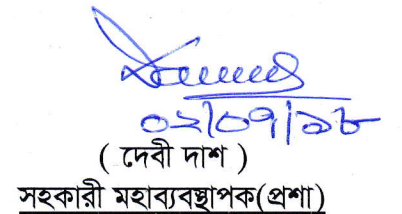 ০২/০৭/১৮
( দেবী দাশ )
সহকারী মহাব্যবস্থাপক(প্রশা)